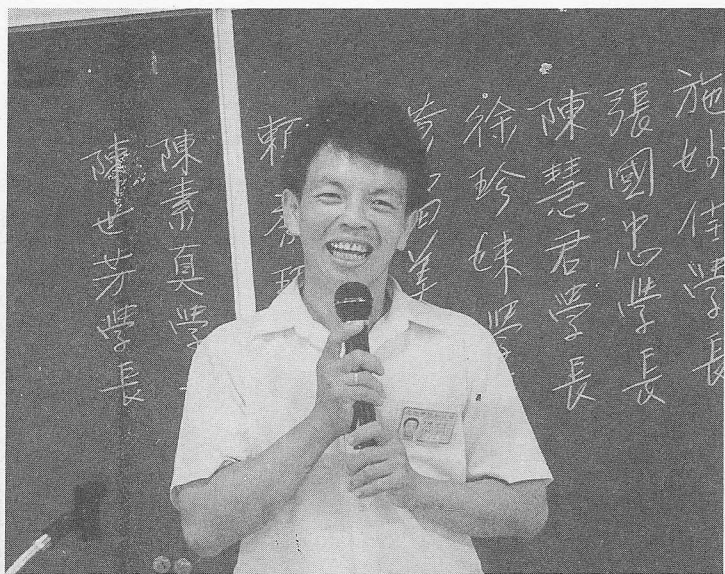 施妙佳學長
張國忠學長
陳慧君學長
徐珍妹學
美
賴
陳素真學
陳世芳學長